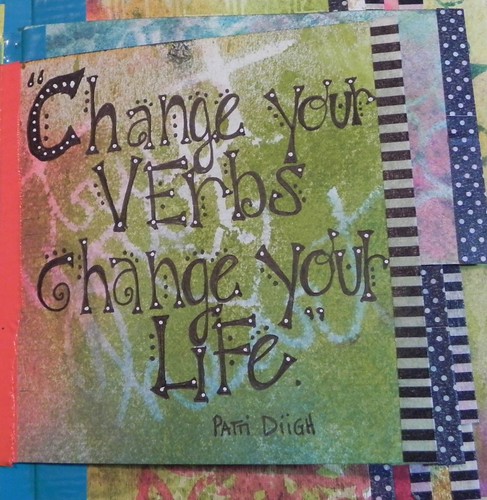 "Change your
VErbs
change your
LiFe."
Patti DiiGH